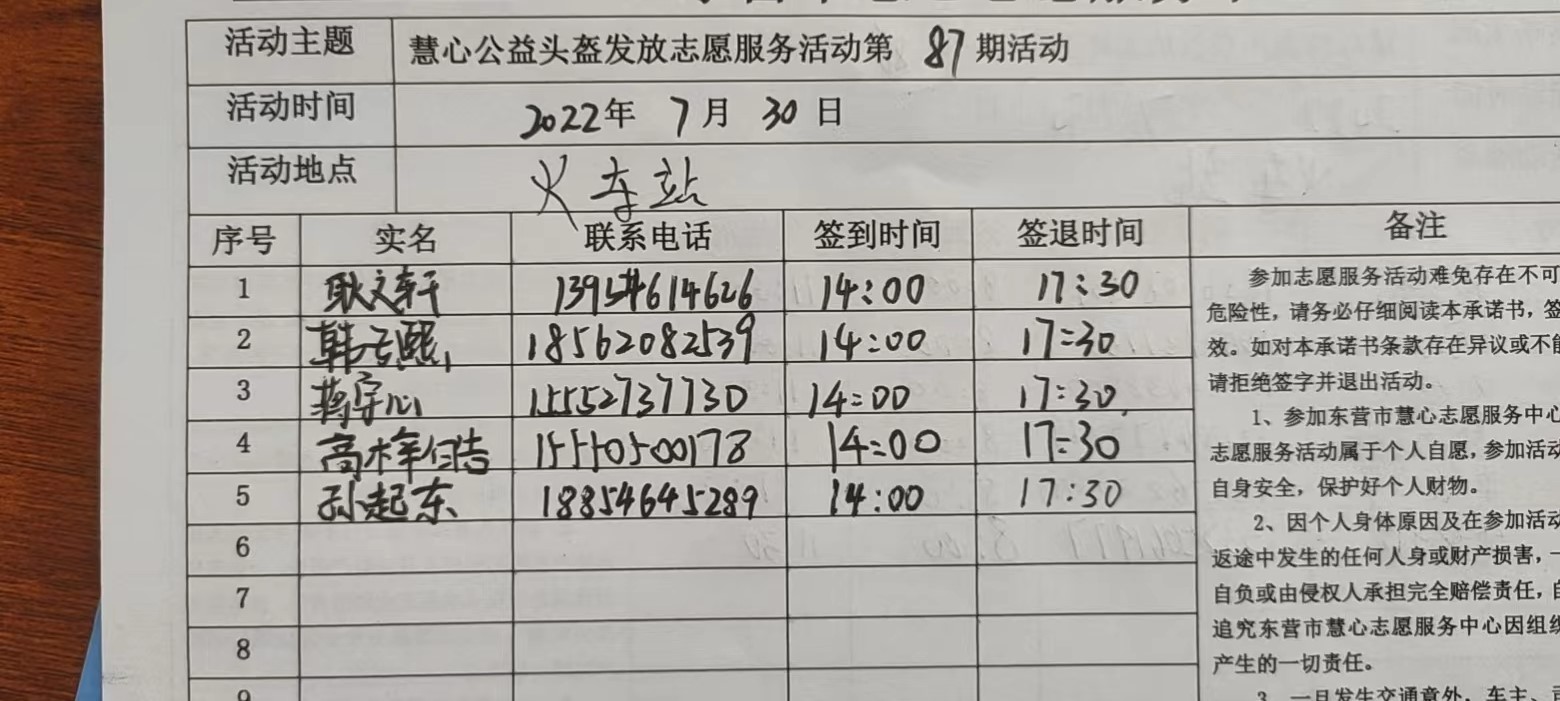 活动主题 慧心公益头盔发放志愿服务活动第 87 期活动
活动时间 2022年 7月 30日
活动地点 火车站
序号 实名 联系电话 签到时间 签退时间 备注
1 耿文轩 13954614626 14:00 17:30
2 韩云熙 18562082539 14:00 17:30
3 蒋宇心 15552737730 14:00 17:30
4 高梓皓 15550500178 14:00 17:30
5 孙起东 18854645289 14:00 17:30
6
7
8
9
参加志愿服务活动难免存在不可
危险性，请务必仔细阅读本承诺书，签
效。如对本承诺书条款存在异议或不能
请拒绝签字并退出活动。
1、参加东营市慧心志愿服务中心
志愿服务活动属于个人自愿，参加活动
自身安全，保护好个人财物。
2、因个人身体原因及在参加活动
返途中发生的任何人身或财产损害，一
自负或由侵权人承担完全赔偿责任，自
追究东营市慧心志愿服务中心因组织
产生的一切责任。
3、一旦发生交通意外，车主、司